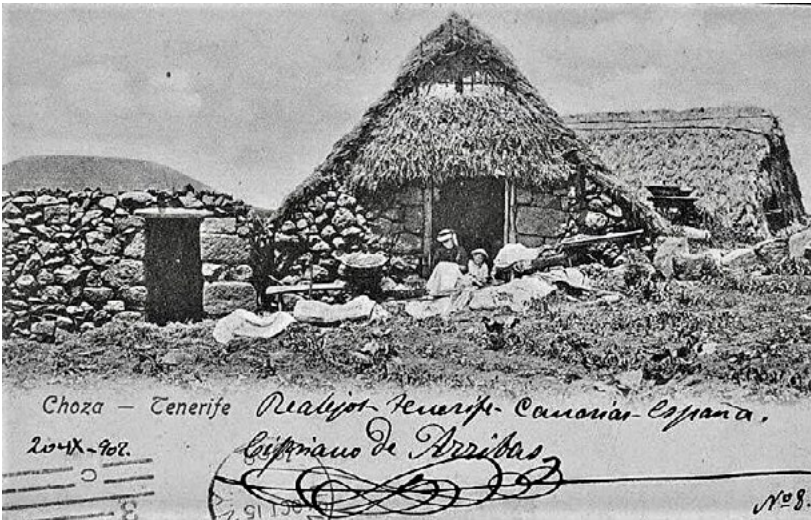 Choza — Tenerife Realejos-Tenerife-Canarias-España.
20-IX-902.
Cipriano de Arribas
OCT 15
Nº 8.